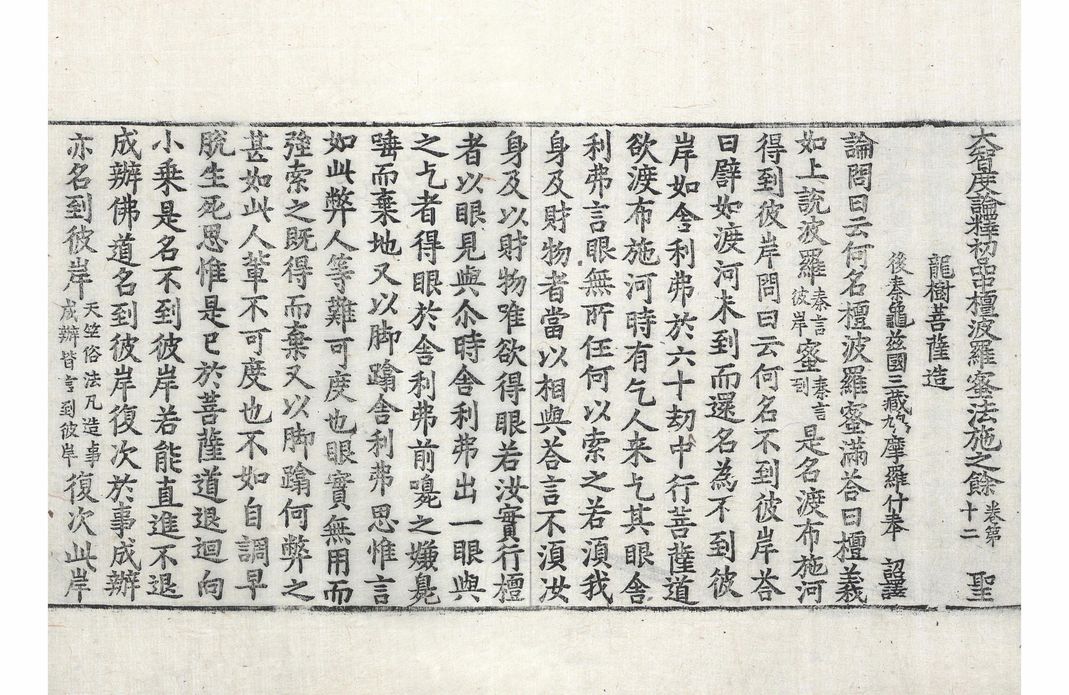 大智度論釋初品中檀波羅蜜法施之餘 卷第十二 聖
龍樹菩薩造
後秦龜玆國三藏鳩摩羅什奉 詔譯
論問曰云何名檀波羅蜜滿荅曰檀義
如上說波羅秦言彼岸蜜秦言到是名渡布施河
得到彼岸問曰云何名不到彼岸荅
曰譬如渡河未到而還名為不到彼
岸如舍利弗於六十劫中行菩薩道
欲渡布施河時有乞人来乞其眼舍
利弗言眼無所任何以索之若湏我
身及財物者當以相與荅言不湏汝
身及以財物唯欲得眼若汝實行檀
者以眼見與尒時舍利弗出一眼與
之乞者得眼於舍利弗前嗅之嫌臭
唾而棄地又以脚蹹舍利弗思惟言
如此弊人等難可度也眼實無用而
強索之既得而棄又以脚蹹何弊之
甚如此人軰不可度也不如自調早
脫生死思惟是已於菩薩道退迴向
小乗是名不到彼岸若能直進不退
成辦佛道名到彼岸復次於事成辦
亦名到彼岸天竺俗法凡造事成辦皆言到彼岸復次此岸